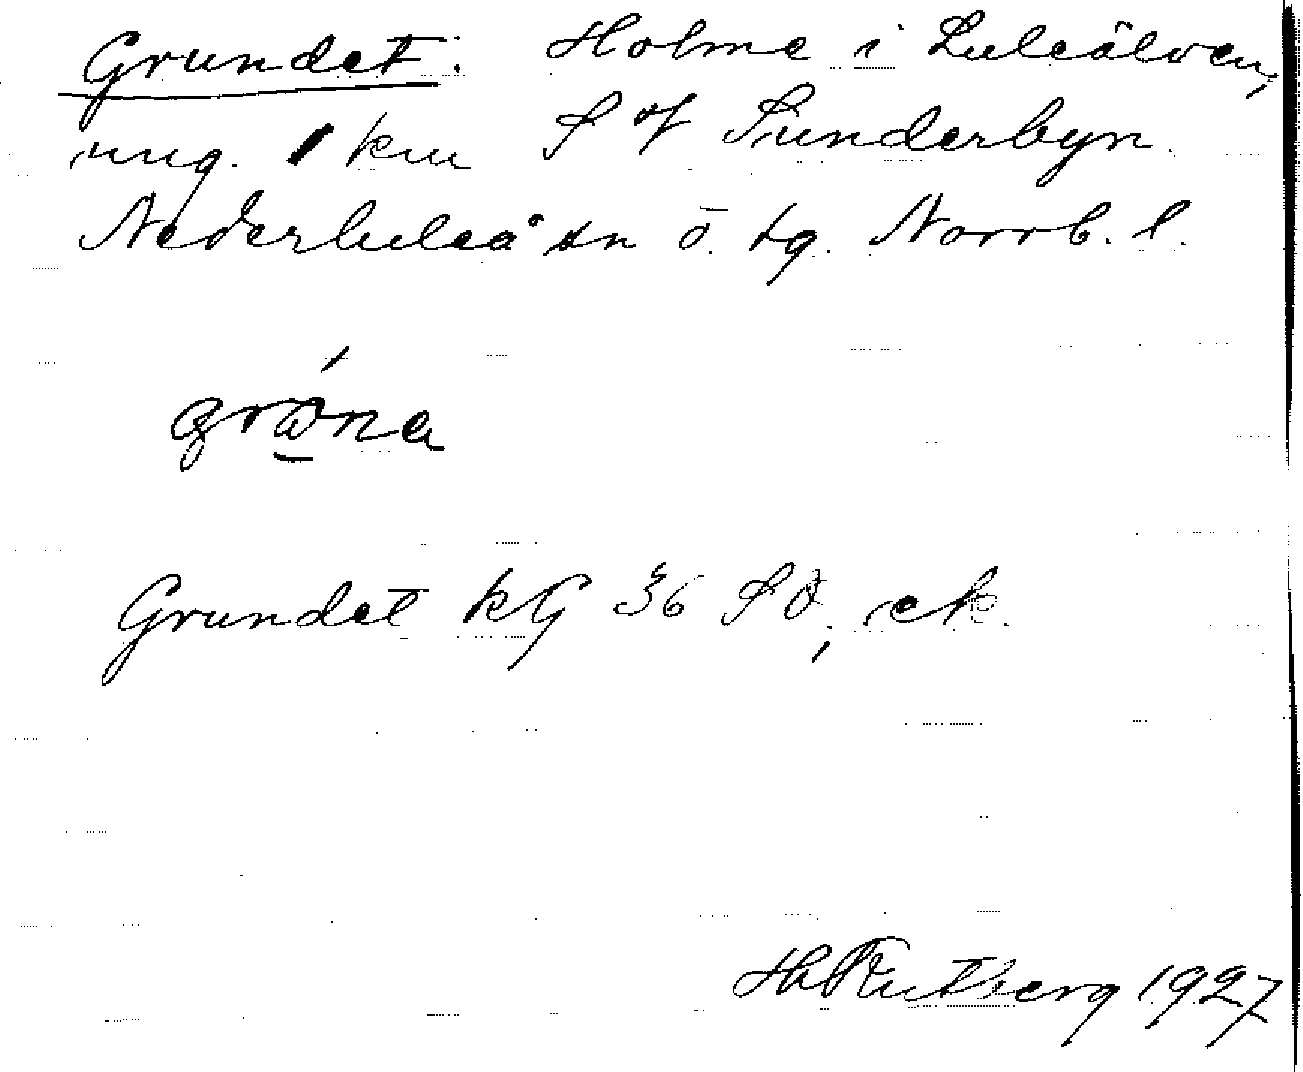 Grundet. Holme i Luleälven,
ung. 1 km S of Sunderbyn.
Nederluleå sn ö. tg. Norrb. l.
Grundet kG 36 SÖ, ek.
H. Rutberg 1927